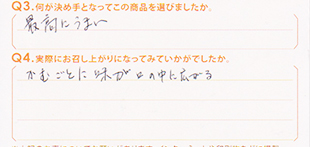 Q3.何が決め手となってこの商品を選びましたか。
最高にうまい
Q4.実際にお召し上がりになってみていかがでしたか。
かむごとに味が口の中に広がる